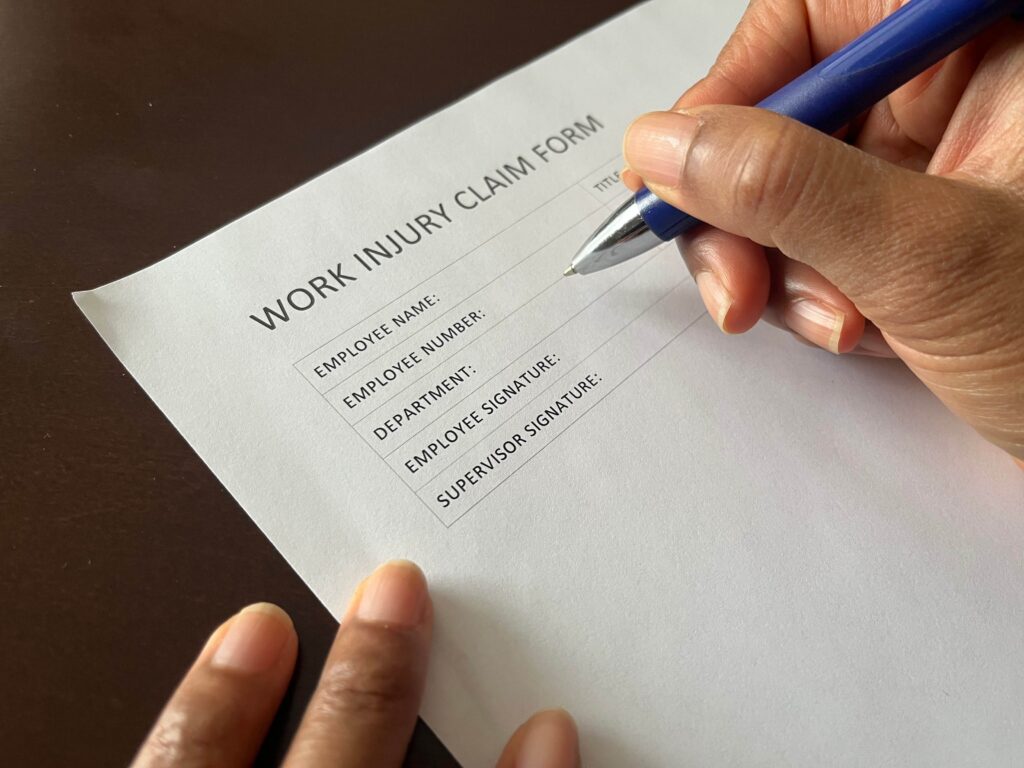 WORK INJURY CLAIM FORM
EMPLOYEE NAME:
TITLE
EMPLOYEE NUMBER:
DEPARTMENT:
EMPLOYEE SIGNATURE:
SUPERVISOR SIGNATURE: